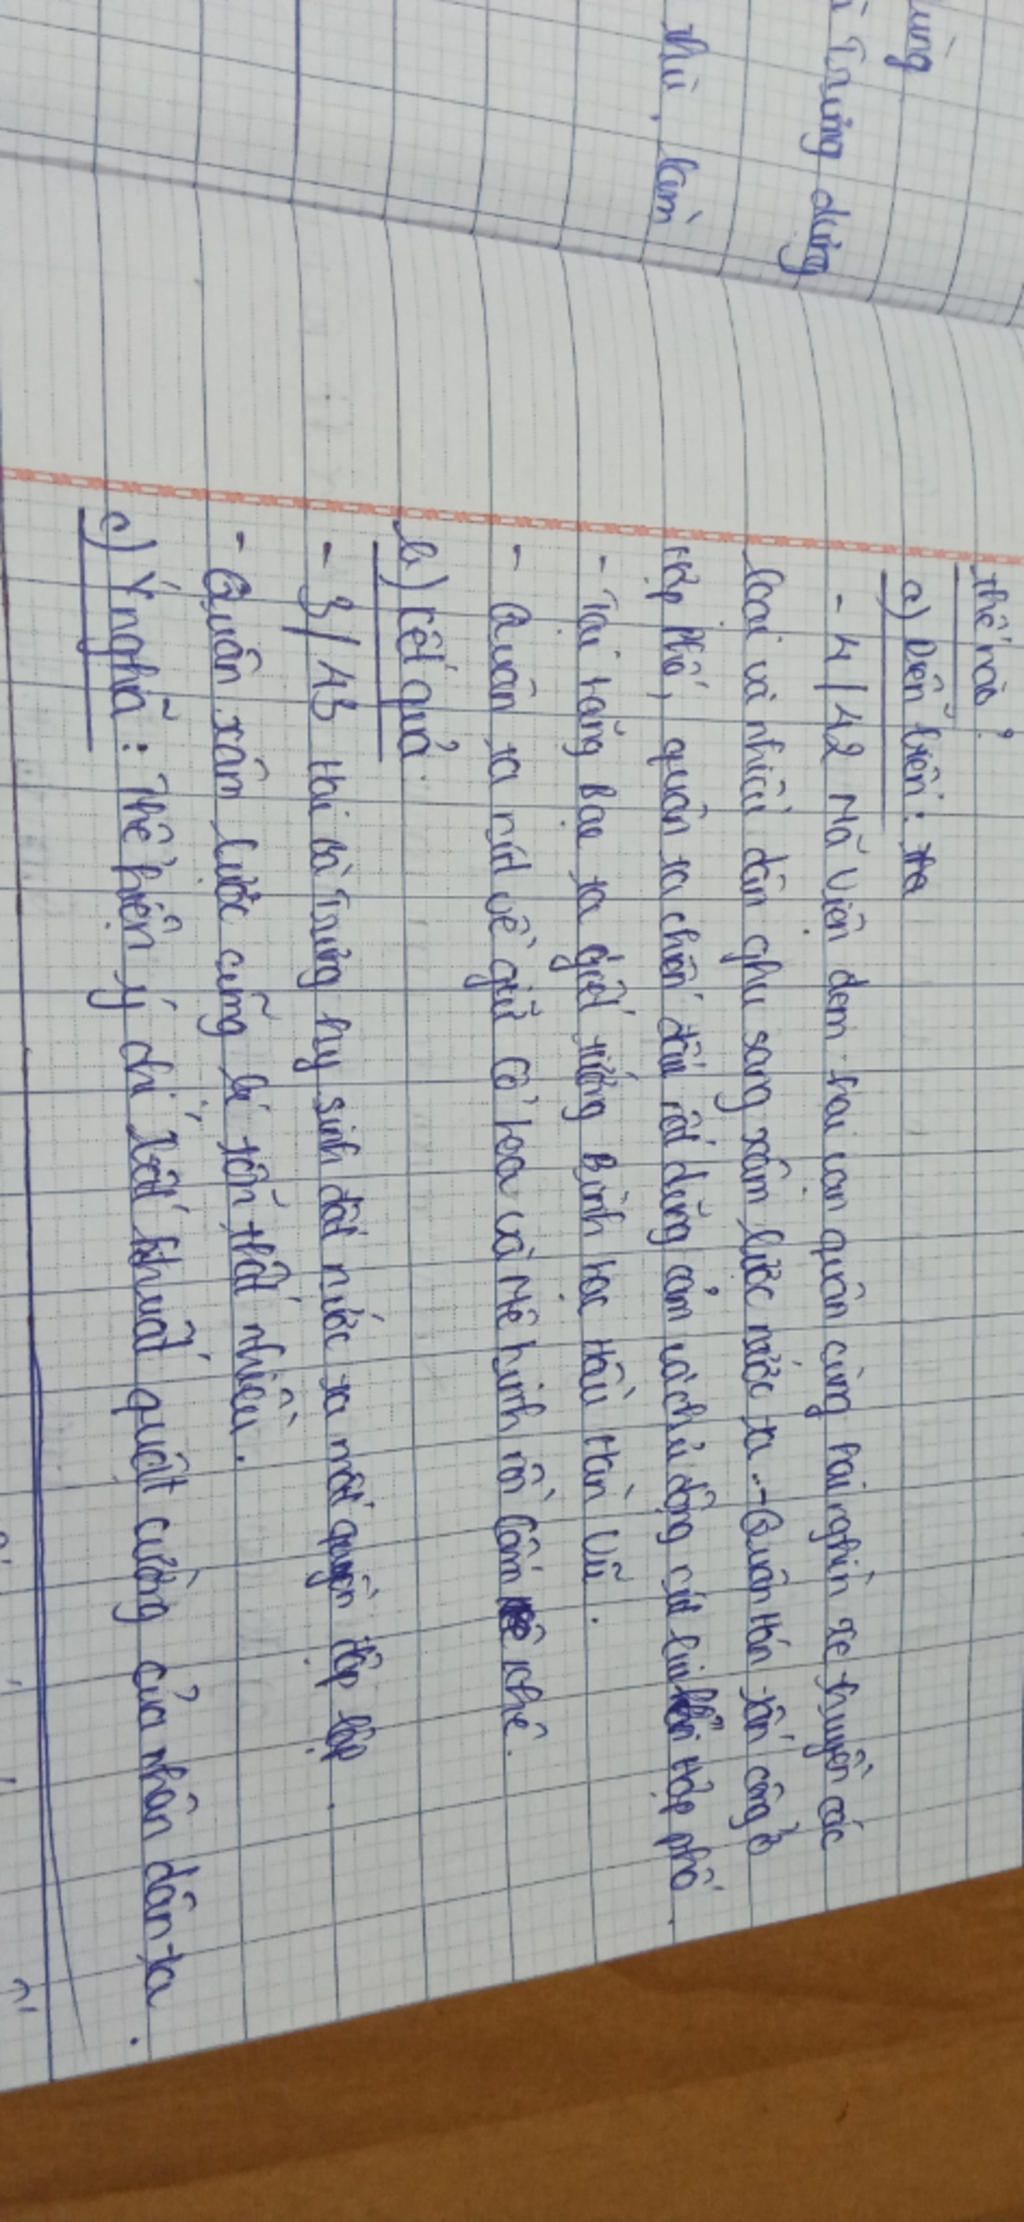 ùng
Trưng dựng
thù, làm
thế nào?
a) Diễn biến:
- 4/42 Mã Viện đem hai vạn quân cùng hai nghìn xe thuyền các
loại và nhiều dân phu sang xâm lược nước ta. - Quân Hán tấn công ở
Hợp Phố, quân ta chiến đấu rất dũng cảm và chủ động rút lui khỏi Hợp phố.
- Tại Lãng Bạc ta giết tướng Bình Lạc Hầu Hàn Vũ.
- Quân ta rút về giữ Cổ Loa và Mê Linh rồi Cấm Khê.
b) Kết quả
- 3/43 Hai Bà Trưng hy sinh đất nước ta mất quyền độc lập.
- Quân xâm lược cũng bị tổn thất nhiều.
c) Ý nghĩa: Thể hiện ý chí bất khuất quật cường của nhân dân ta.